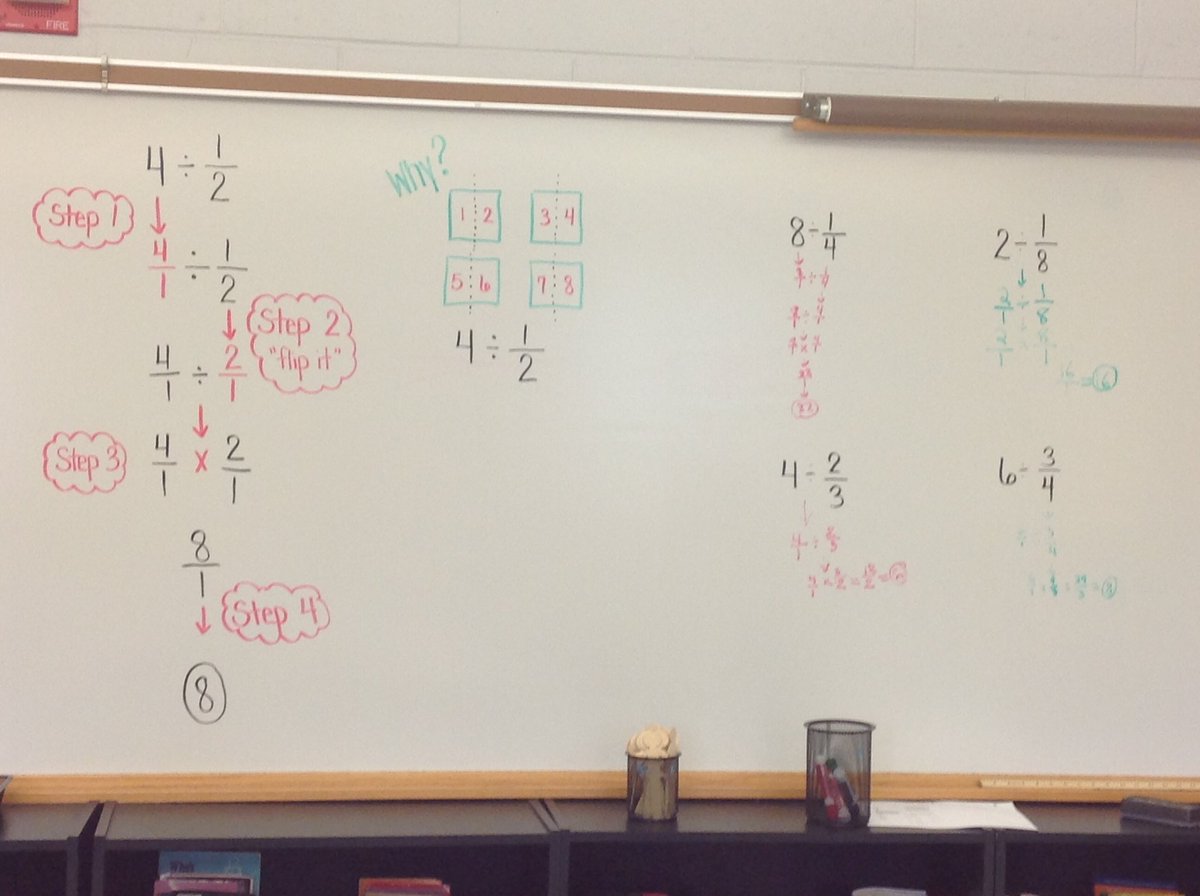 FIRE
4 ÷ 1/2
Step 1
4/1 ÷ 1/2
Step 2
"flip it"
4/1 ÷ 2/1
Step 3
4/1 x 2/1
8/1
Step 4
8
Why?
1 2 3 4
5 6 7 8
4 ÷ 1/2
8 ÷ 1/4
32
2 ÷ 1/8
2/1 ÷ 1/8
16/1 = 16
4 ÷ 2/3
4/1 ÷ 2/3
6 ÷ 3/4